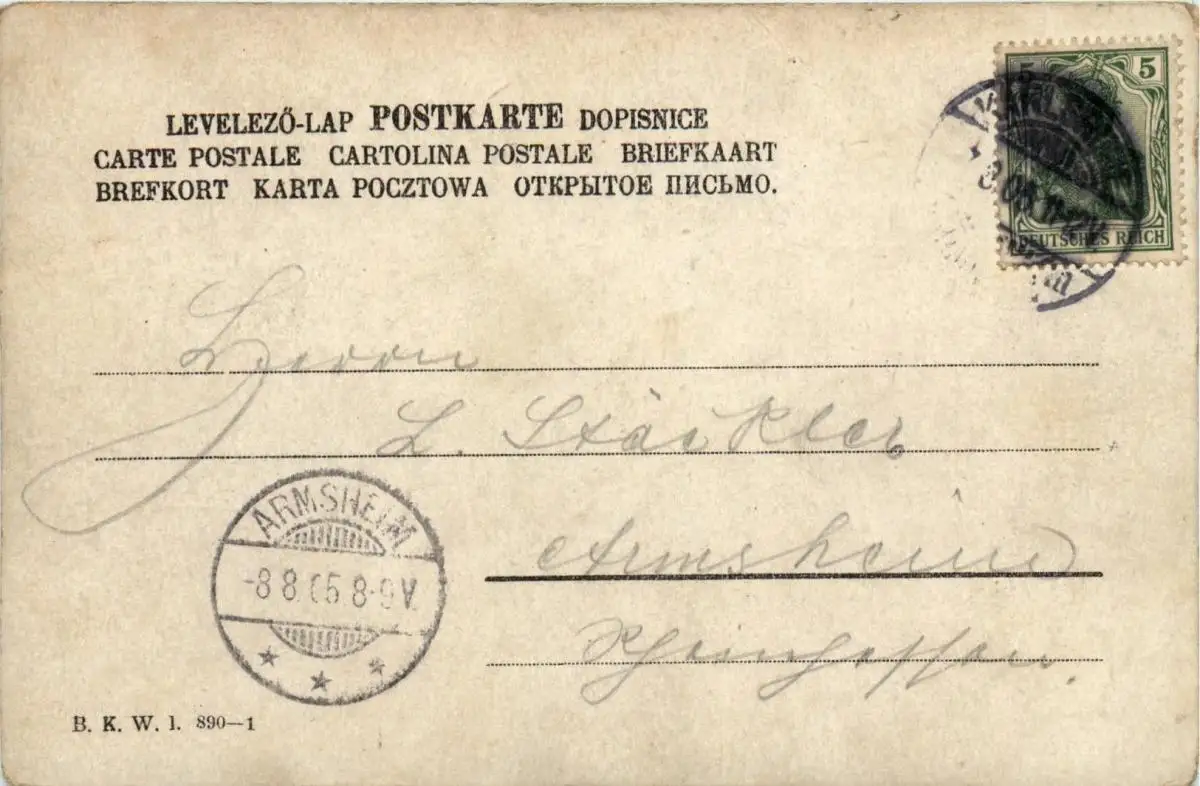 LEVELEZŐ-LAP POSTKARTE DOPISNICE
CARTE POSTALE CARTOLINA POSTALE BRIEFKAART
BREFKORT KARTA POCZTOWA ОТКРЫТОЕ ПИСЬМО.
5 5
DEUTSCHES REICH
Herrn
L. Stäckler
Armsheim
Rheinhessen.
ARMSHEIM
-8 8 05 8-9 V.
B. K. W. I. 890-1